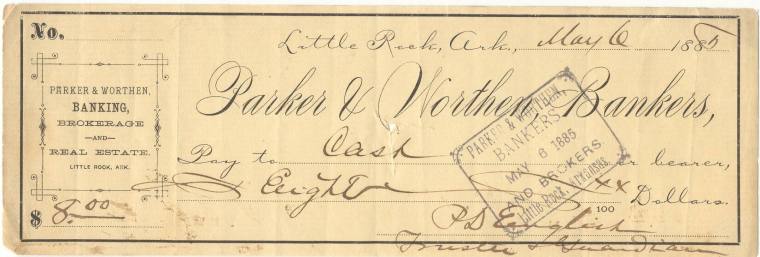 No.
PARKER & WORTHEN,
BANKING,
BROKERAGE
—AND—
REAL ESTATE.
LITTLE ROCK, ARK.
$ 8.00
Little Rock, Ark., May 6 1885
Parker & Worthen, Bankers,
Pay to Cash or bearer,
Eight xx/100 Dollars.
P D English
Trustee & Guardian
PARKER & WORTHEN,
BANKERS
MAY 6 1885
AND BROKERS
Little Rock, Arkansas.